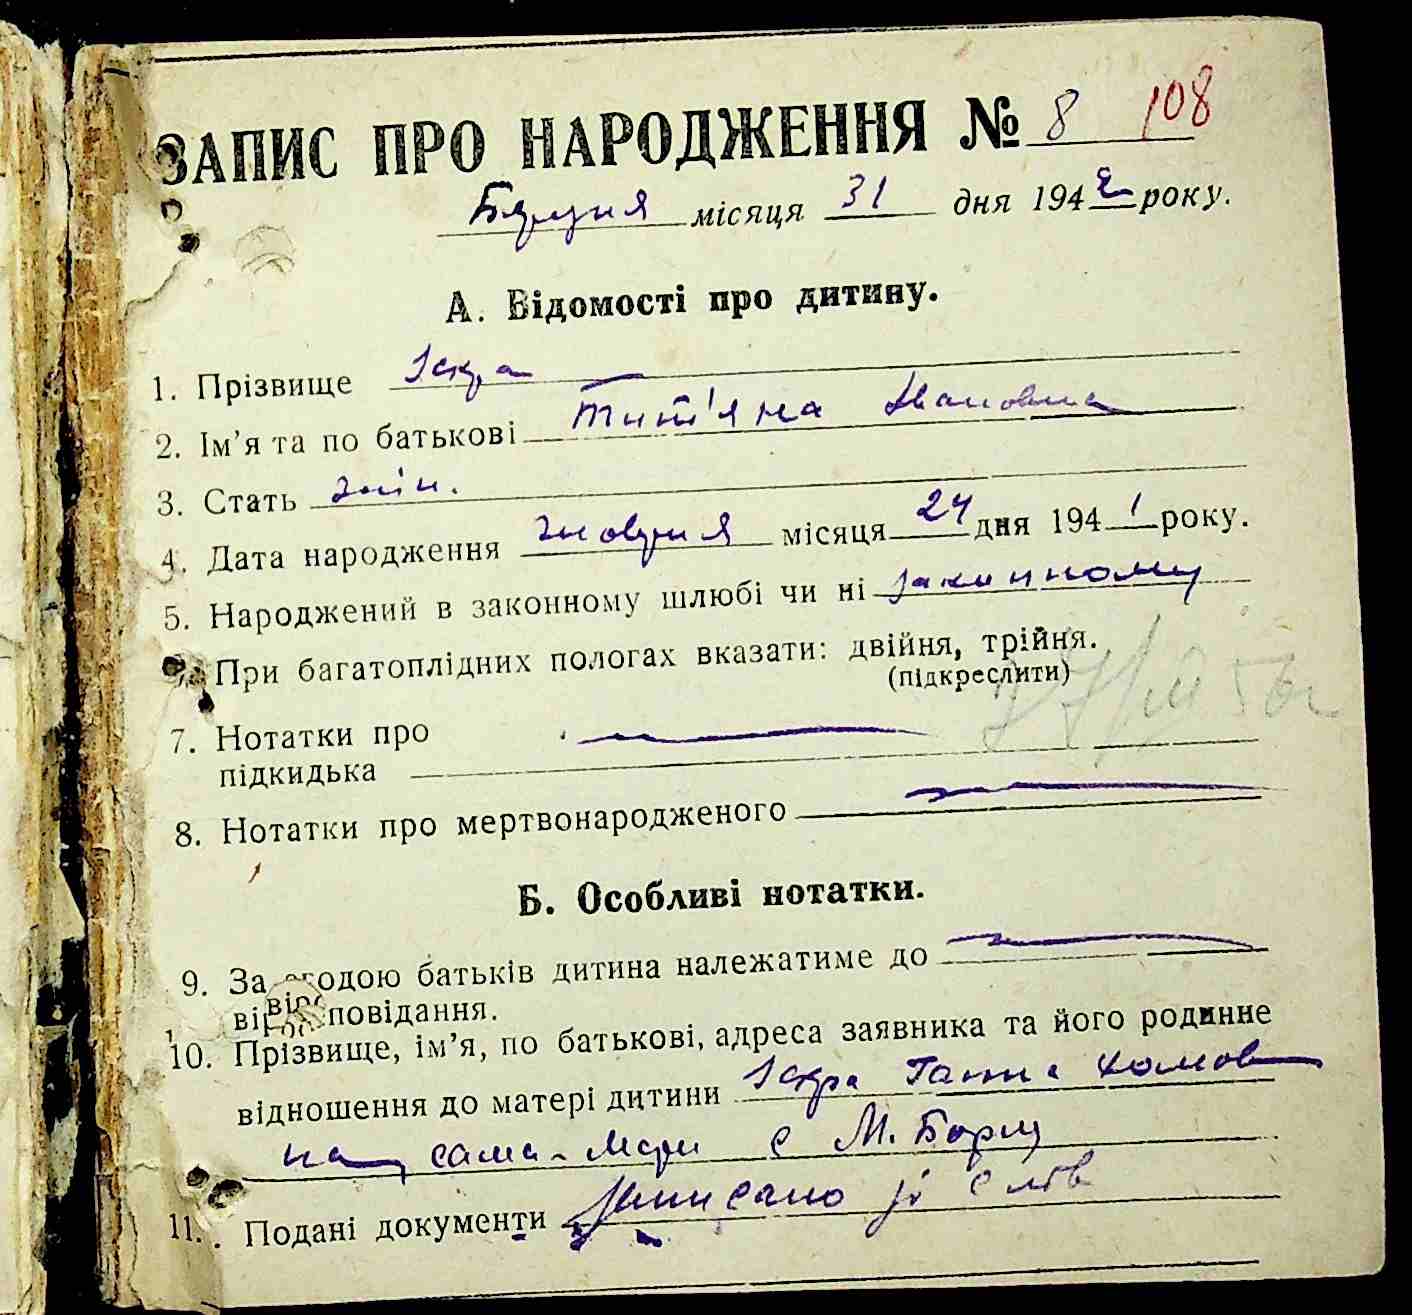 ЗАПИС ПРО НАРОДЖЕННЯ № 8 108
місяця 31 дня 1942 року.
А. Відомості про дитину.
1. Прізвище Іскра
2. Ім'я та по батькові Тит'яна Івановна
3. Стать жін.
4. Дата народження жовтня місяця 24 дня 1941 року.
5. Народжений в законному шлюбі чи ні законному
При багатоплідних пологах вказати: двійня, трійня.
(підкреслити)
7. Нотатки про
підкидька
8. Нотатки про мертвонародженого
Б. Особливі нотатки.
9. За згодою батьків дитина належатиме до
віросповідання.
10. Прізвище, ім'я, по батькові, адреса заявника та його родинне
відношення до матері дитини Іскра Ганна Хомов
на, сама-мати с М. Борщ
11. Подані документи Записано зі слів